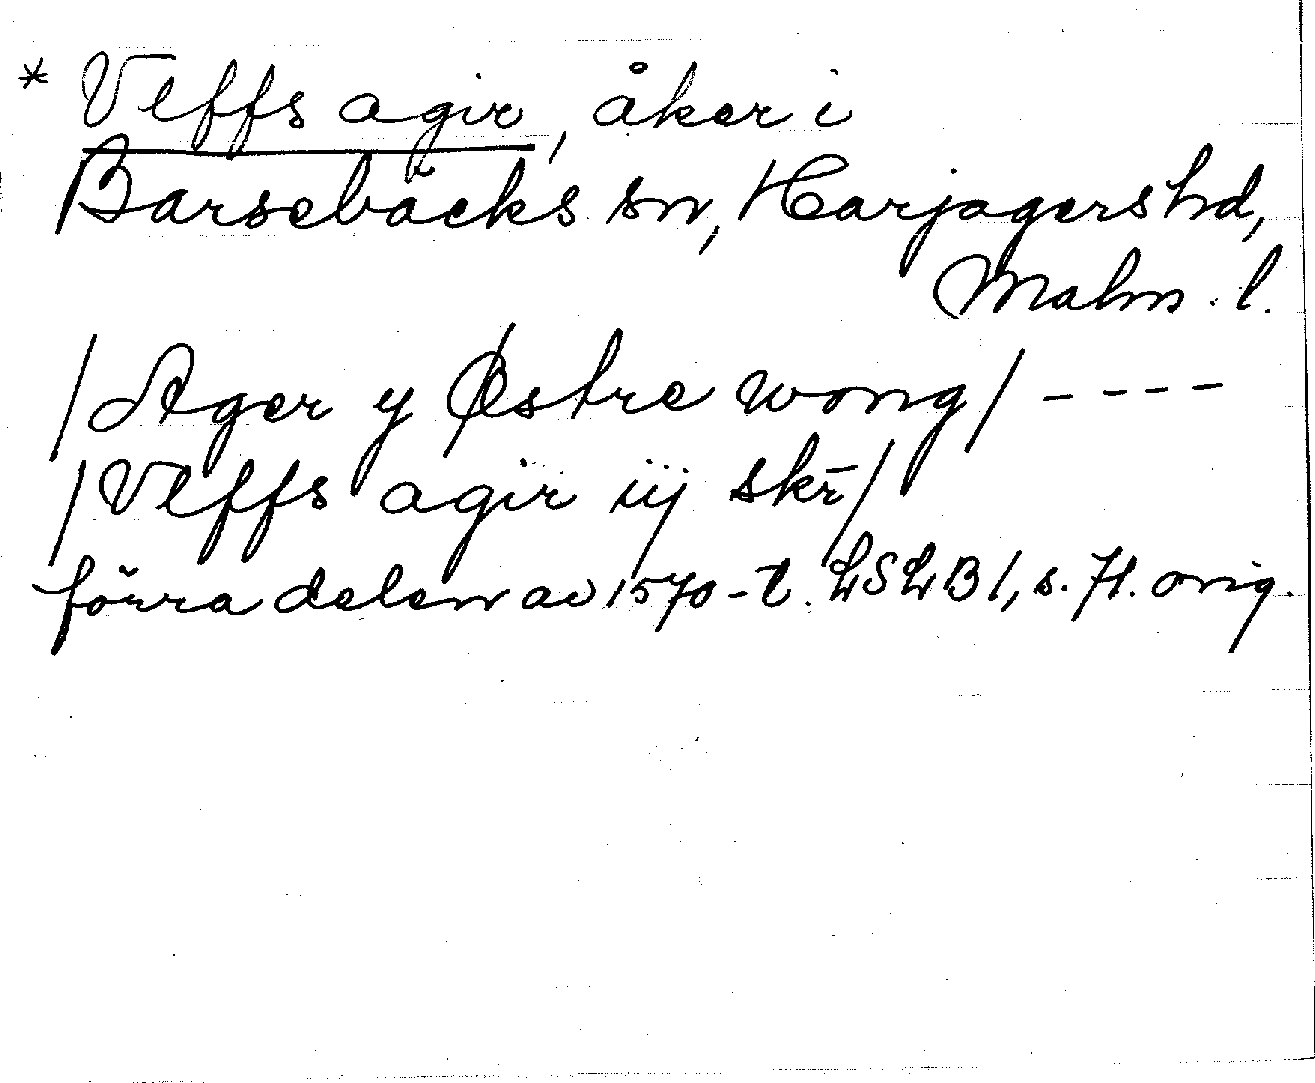 * Veffs agir, åker i
Barsebäcks sn, Harjagers hd,
Malm. l.
/Ager y Østre wong/ ----
/Veffs agir iij skr̄/
förra delen av 1570-t. LSLB 1, s. 71. orig.